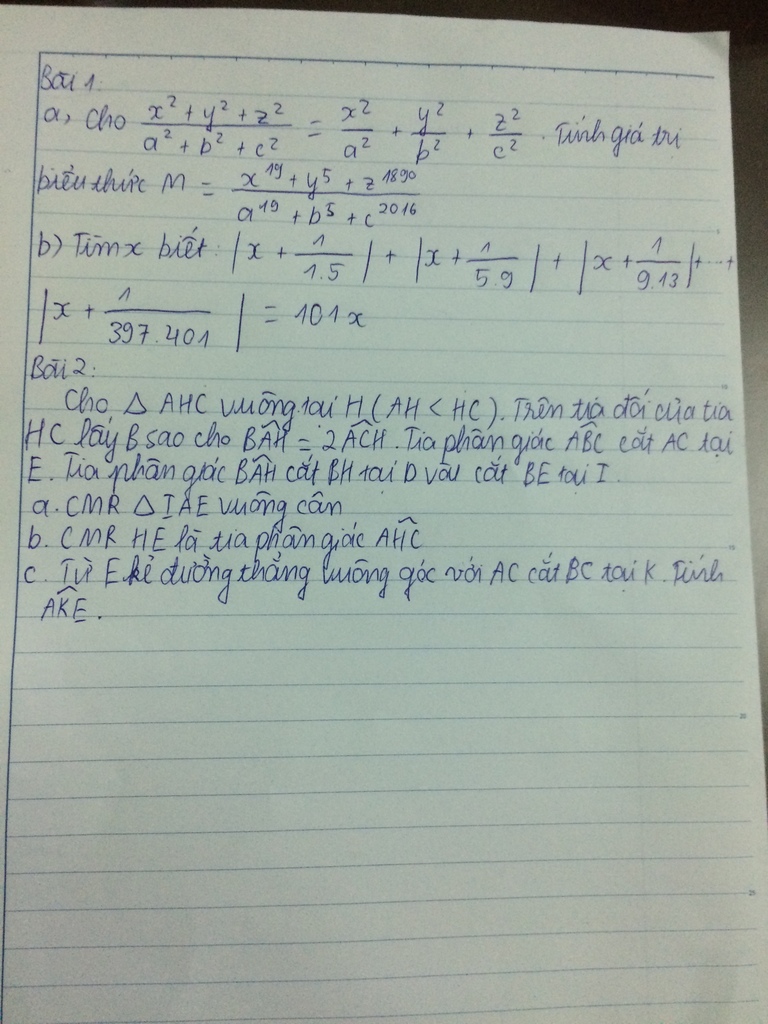 Bài 1:
a, Cho \frac{x^2 + y^2 + z^2}{a^2 + b^2 + c^2} = \frac{x^2}{a^2} + \frac{y^2}{b^2} + \frac{z^2}{c^2}. Tính giá trị
biểu thức M = \frac{x^{19} + y^5 + z^{1890}}{a^{19} + b^5 + c^{2016}}
b) Tìm x biết: |x + \frac{1}{1.5}| + |x + \frac{1}{5.9}| + |x + \frac{1}{9.13}| + ... +
|x + \frac{1}{397.401}| = 101x
Bài 2:
Cho Δ AHC vuông tại H (AH < HC). Trên tia đối của tia
HC lấy B sao cho \widehat{BAH} = 2\widehat{ACH}. Tia phân giác \widehat{ABC} cắt AC tại
E. Tia phân giác \widehat{BAH} cắt BH tại D và cắt BE tại I.
a. CMR Δ IAE vuông cân
b. CMR HE là tia phân giác \widehat{AHC}
c. Từ E kẻ đường thẳng vuông góc với AC cắt BC tại K. Tính
\widehat{AKE}.